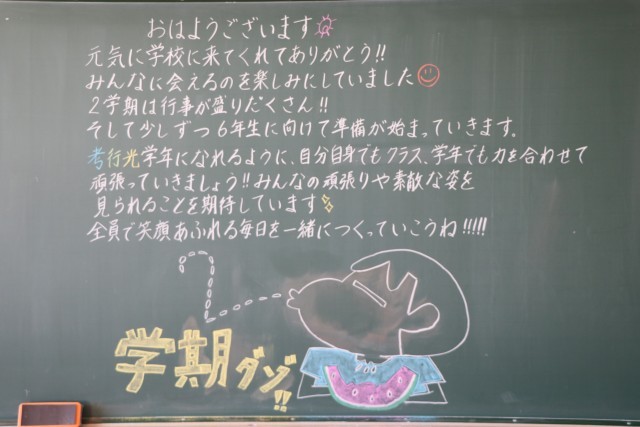 おはようございます
元気に学校に来てくれてありがとう!!
みんなに会えるのを楽しみにしていました
2学期は行事が盛りだくさん!!
そして少しずつ6年生に向けて準備が始まっていきます。
考行光学年になれるように、自分自身でもクラス、学年でも力を合わせて
頑張っていきましょう!!みんなの頑張りや素敵な姿を
見られることを期待しています
全員で笑顔あふれる毎日を一緒につくっていこうね!!!!!
2
学期ダゾ!!